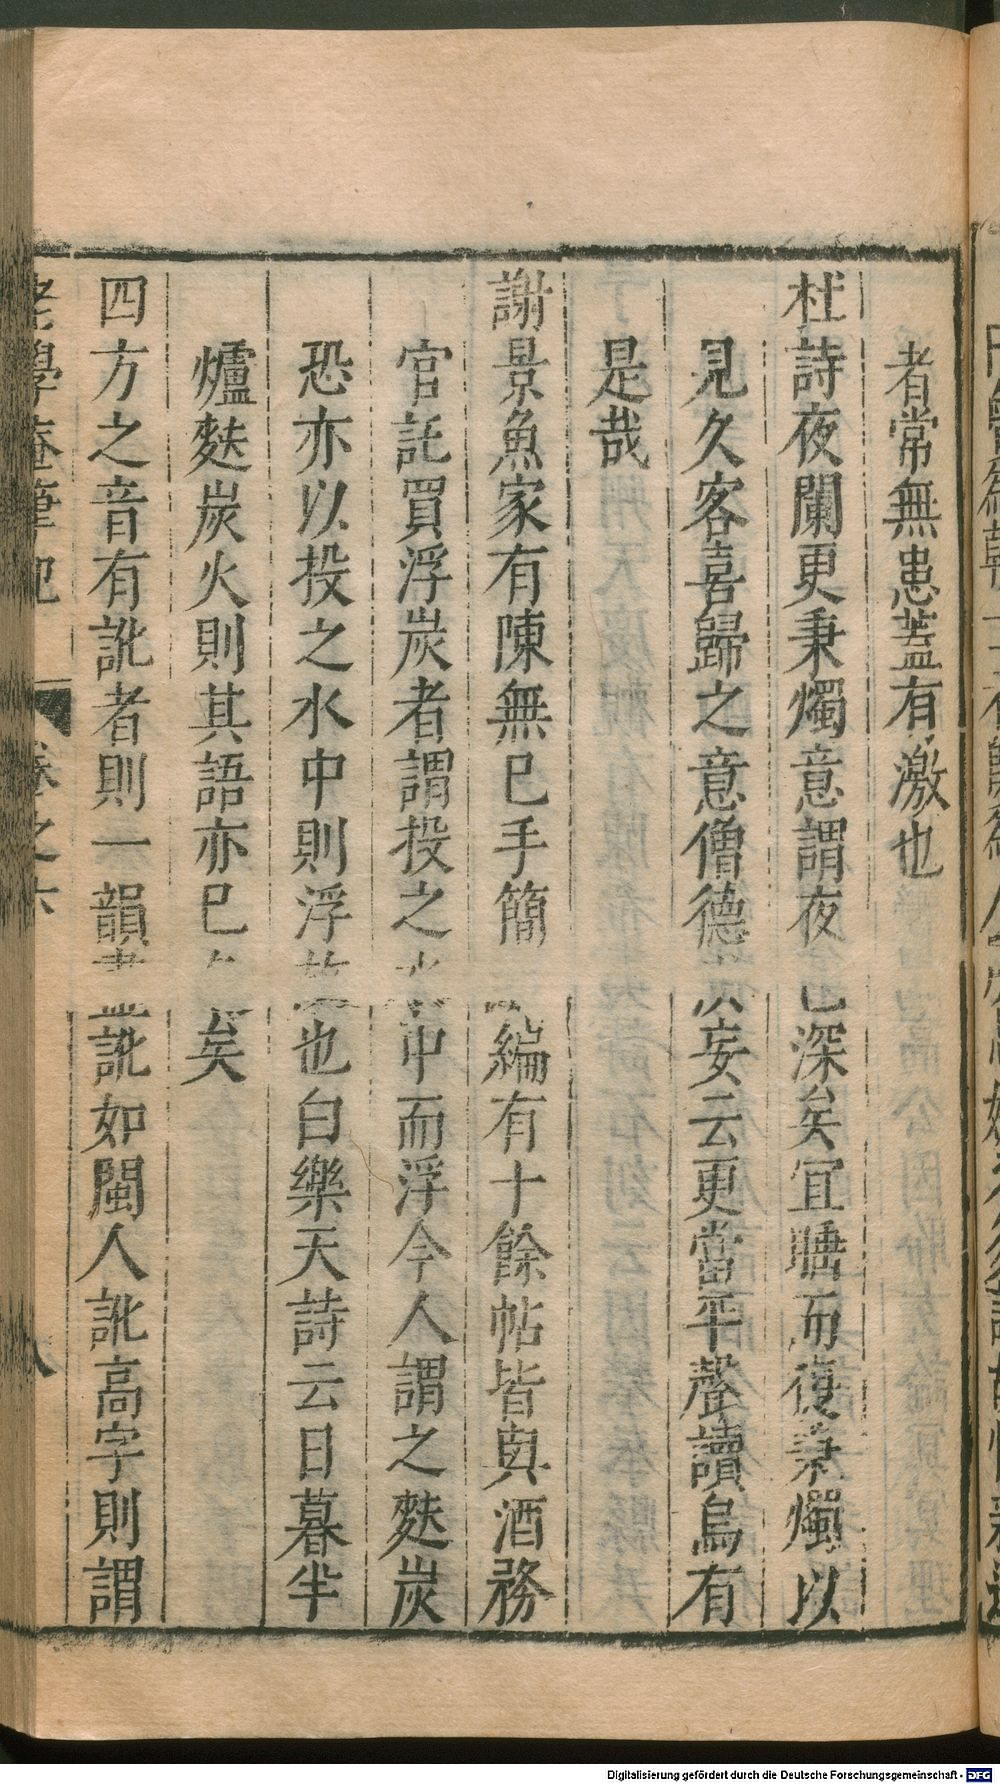 者常無患蓋有激也
杜詩夜闌更秉燭意謂夜已深矣宜睡而復秉燭以
見久客喜歸之意僧德洪妄云更當平聲讀烏有
是哉
謝景魚家有陳無已手簡一編有十餘帖皆與酒務
官託買浮炭者謂投之水中而浮今人謂之麩炭
恐亦以投之水中則浮故也白樂天詩云日暮半
爐麩炭火則其語亦已久矣
四方之音有訛者則一韻盡訛如閩人訛高字則謂
老學庵筆記 卷之六 八
Digitalisierung gefördert durch die Deutsche Forschungsgemeinschaft - DFG